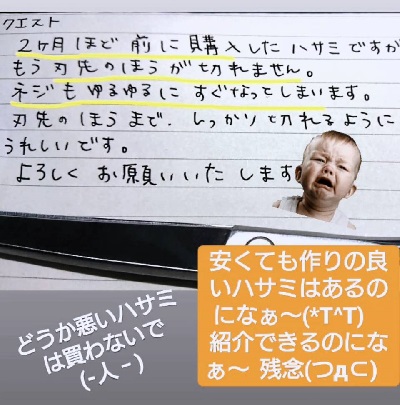 クエスト
2ヶ月ほど前に購入したハサミですが
もう刃先のほうが切れません。
ネジもゆるゆるにすぐなってしまいます。
刃先のほうまで、しっかり切れるように
うれしいです。
よろしくお願いいたします
安くても作りの良
いハサミはあるの
になぁ〜(*T^T)
紹介できるのにな
ぁ〜 残念(つд⊂)
どうか悪いハサミ
は買わないで
(-人-)